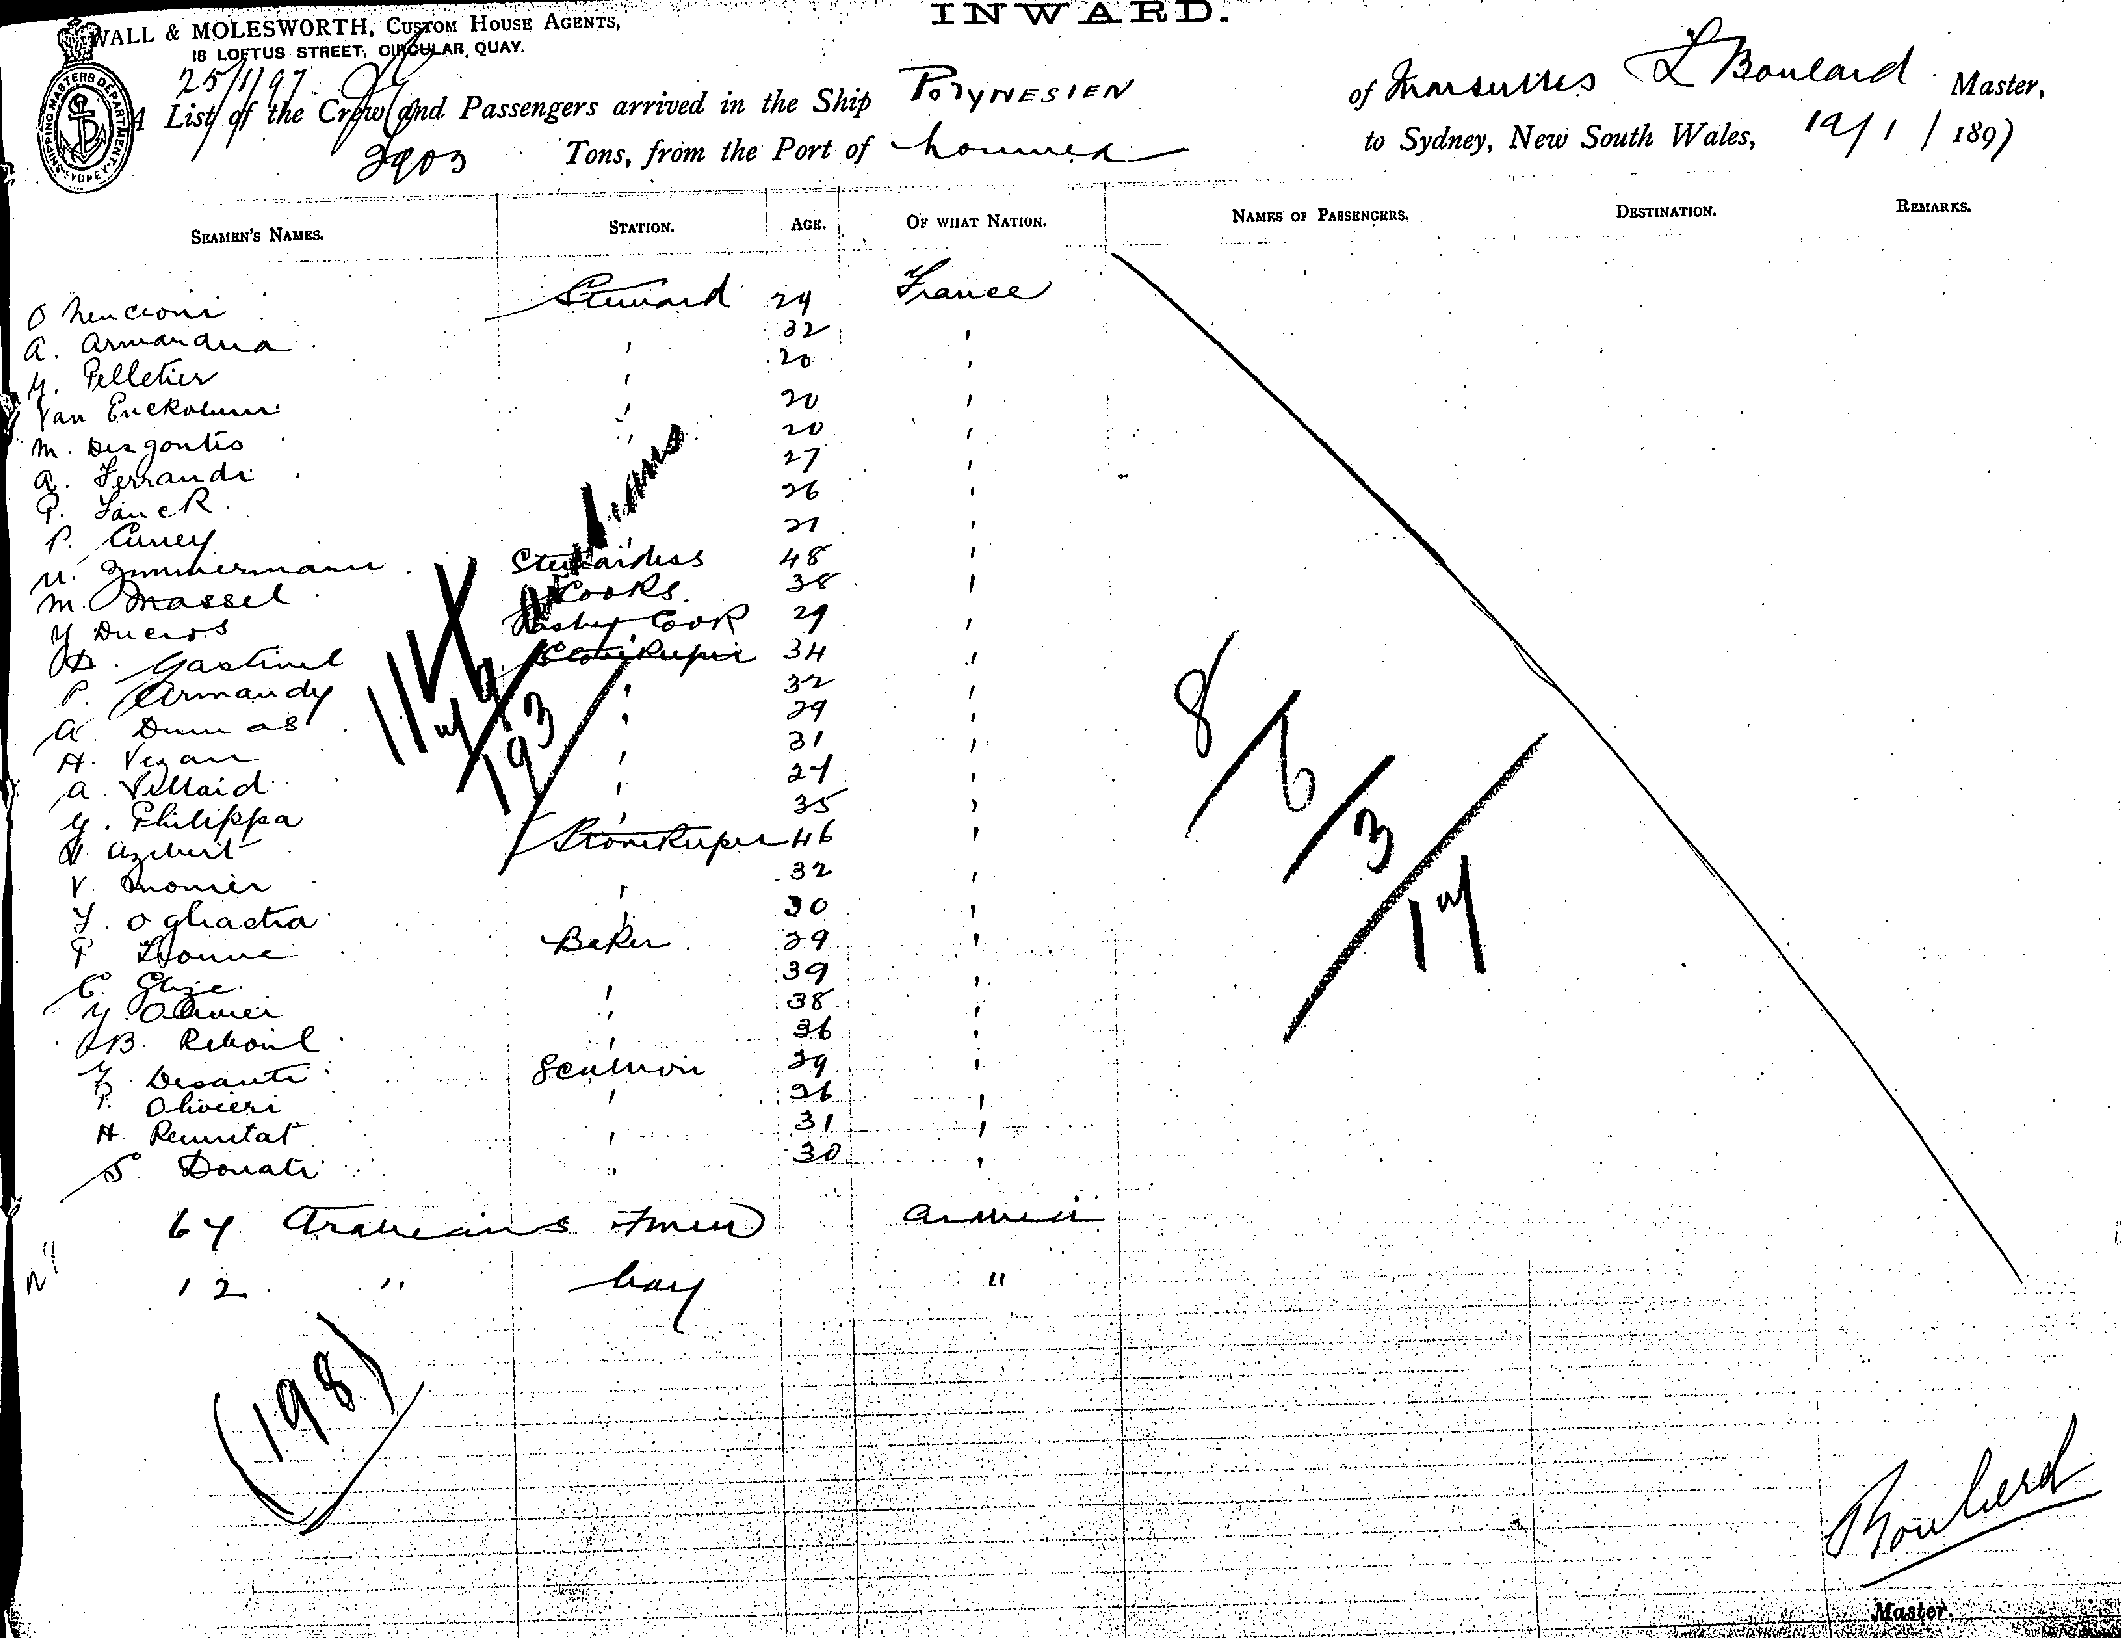 INWARD.
WALL & MOLESWORTH, CUSTOM HOUSE AGENTS,
18 LOFTUS STREET, CIRCULAR QUAY.
SHIPPING MASTERS DEPARTMENT SYDNEY
25/1/97
A List of the Crew and Passengers arrived in the Ship POLYNESIEN of Marseilles L Boulard Master,
2903 Tons, from the Port of Noumea to Sydney, New South Wales, 19/1/1897
SEAMEN'S NAMES. STATION. AGE. OF WHAT NATION. NAMES OF PASSENGERS. DESTINATION. REMARKS.
O Nencioni Steward 29 France
A. Armandua , 32 ,
Y. Pelletier , 20 ,
Van , 20 ,
M. Desgoutis , 20 ,
A. Ferrandi 27 ,
P. Fauck 26 ,
P. Cuney 27 ,
M. Zimmermann Stewardess 48 ,
M. Massel Cooks 38 ,
Y Ducros Cook 29 ,
D. Gastinel Storekeeper 34 ,
P. Armandy , 32 ,
A. Dumas , 29 ,
H. Vezan , 31 ,
A. Villaid , 24 ,
Y. Philippa , 35 ,
Azibert Storekeeper 46 ,
V. Monier 32 ,
Y. Ogliastra , 30 ,
P Baker 29 ,
C. Elize 39 ,
Y. Olivier , 38 ,
B. Reboul , 36 ,
Desanti 29 ,
P. Olivieri , 26 ,
H. Remitat , 31 ,
S. Donati " 30 ,
64 Arabeians Fmen
12 " boy "
(198)
8/6/3/1 w/
11 w/
193
Boulard
Master.